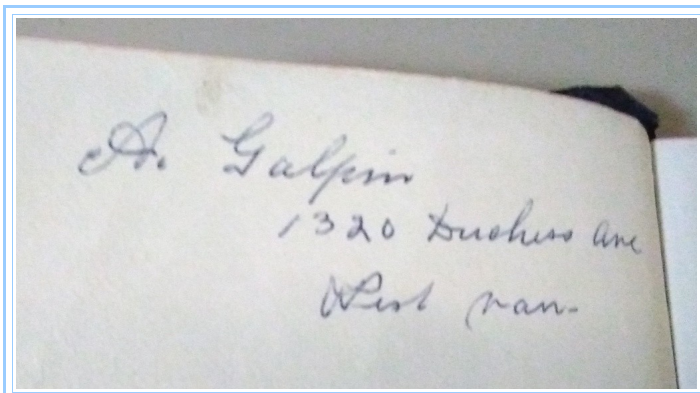 A. Galpin
1320 Duchess Ave
West Van.